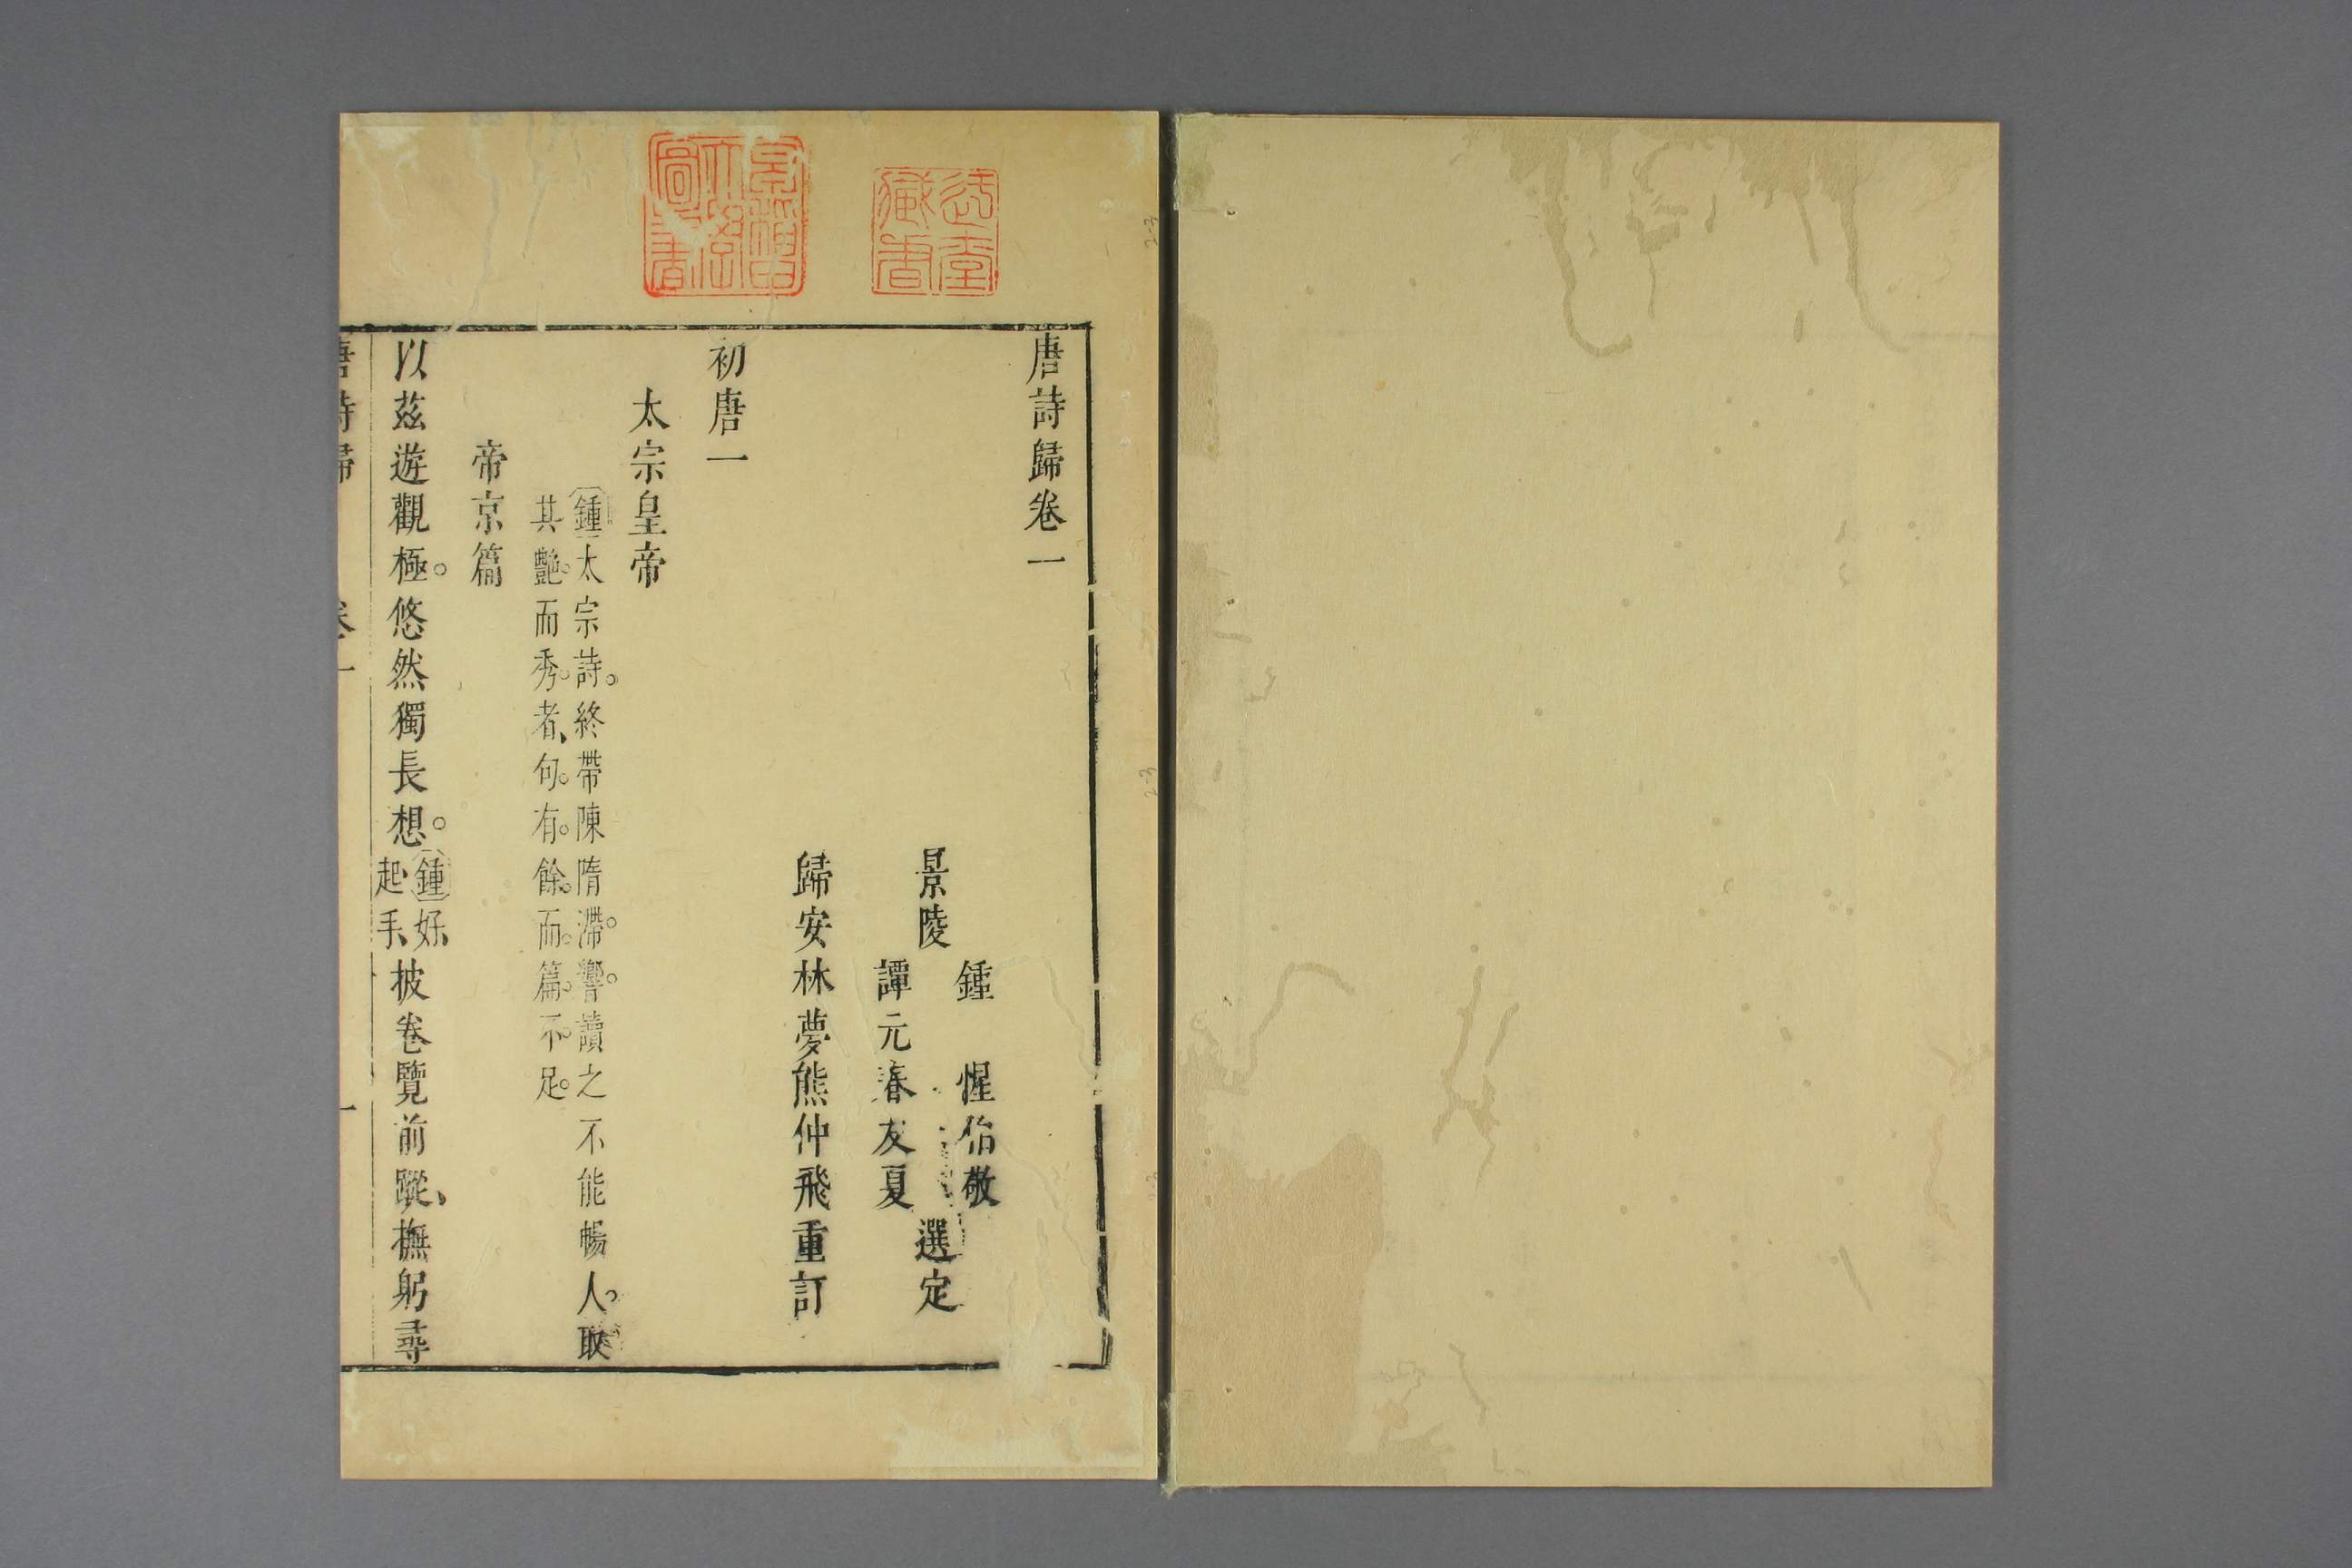 唐詩歸卷一
景陵
鍾　惺伯敬
譚元春友夏
選定
歸安林夢熊仲飛重訂
初唐一
太宗皇帝
鍾太宗詩。終帶陳隋滯。響。讀之不能暢人。取
其艷。而秀。者、句。有。餘。而。篇。不。足。
帝京篇
以茲遊觀極。悠然獨長想。
鍾好、
起手、
披卷覽前蹤、撫躬尋
唐詩歸　卷一　一
臧書
圖書